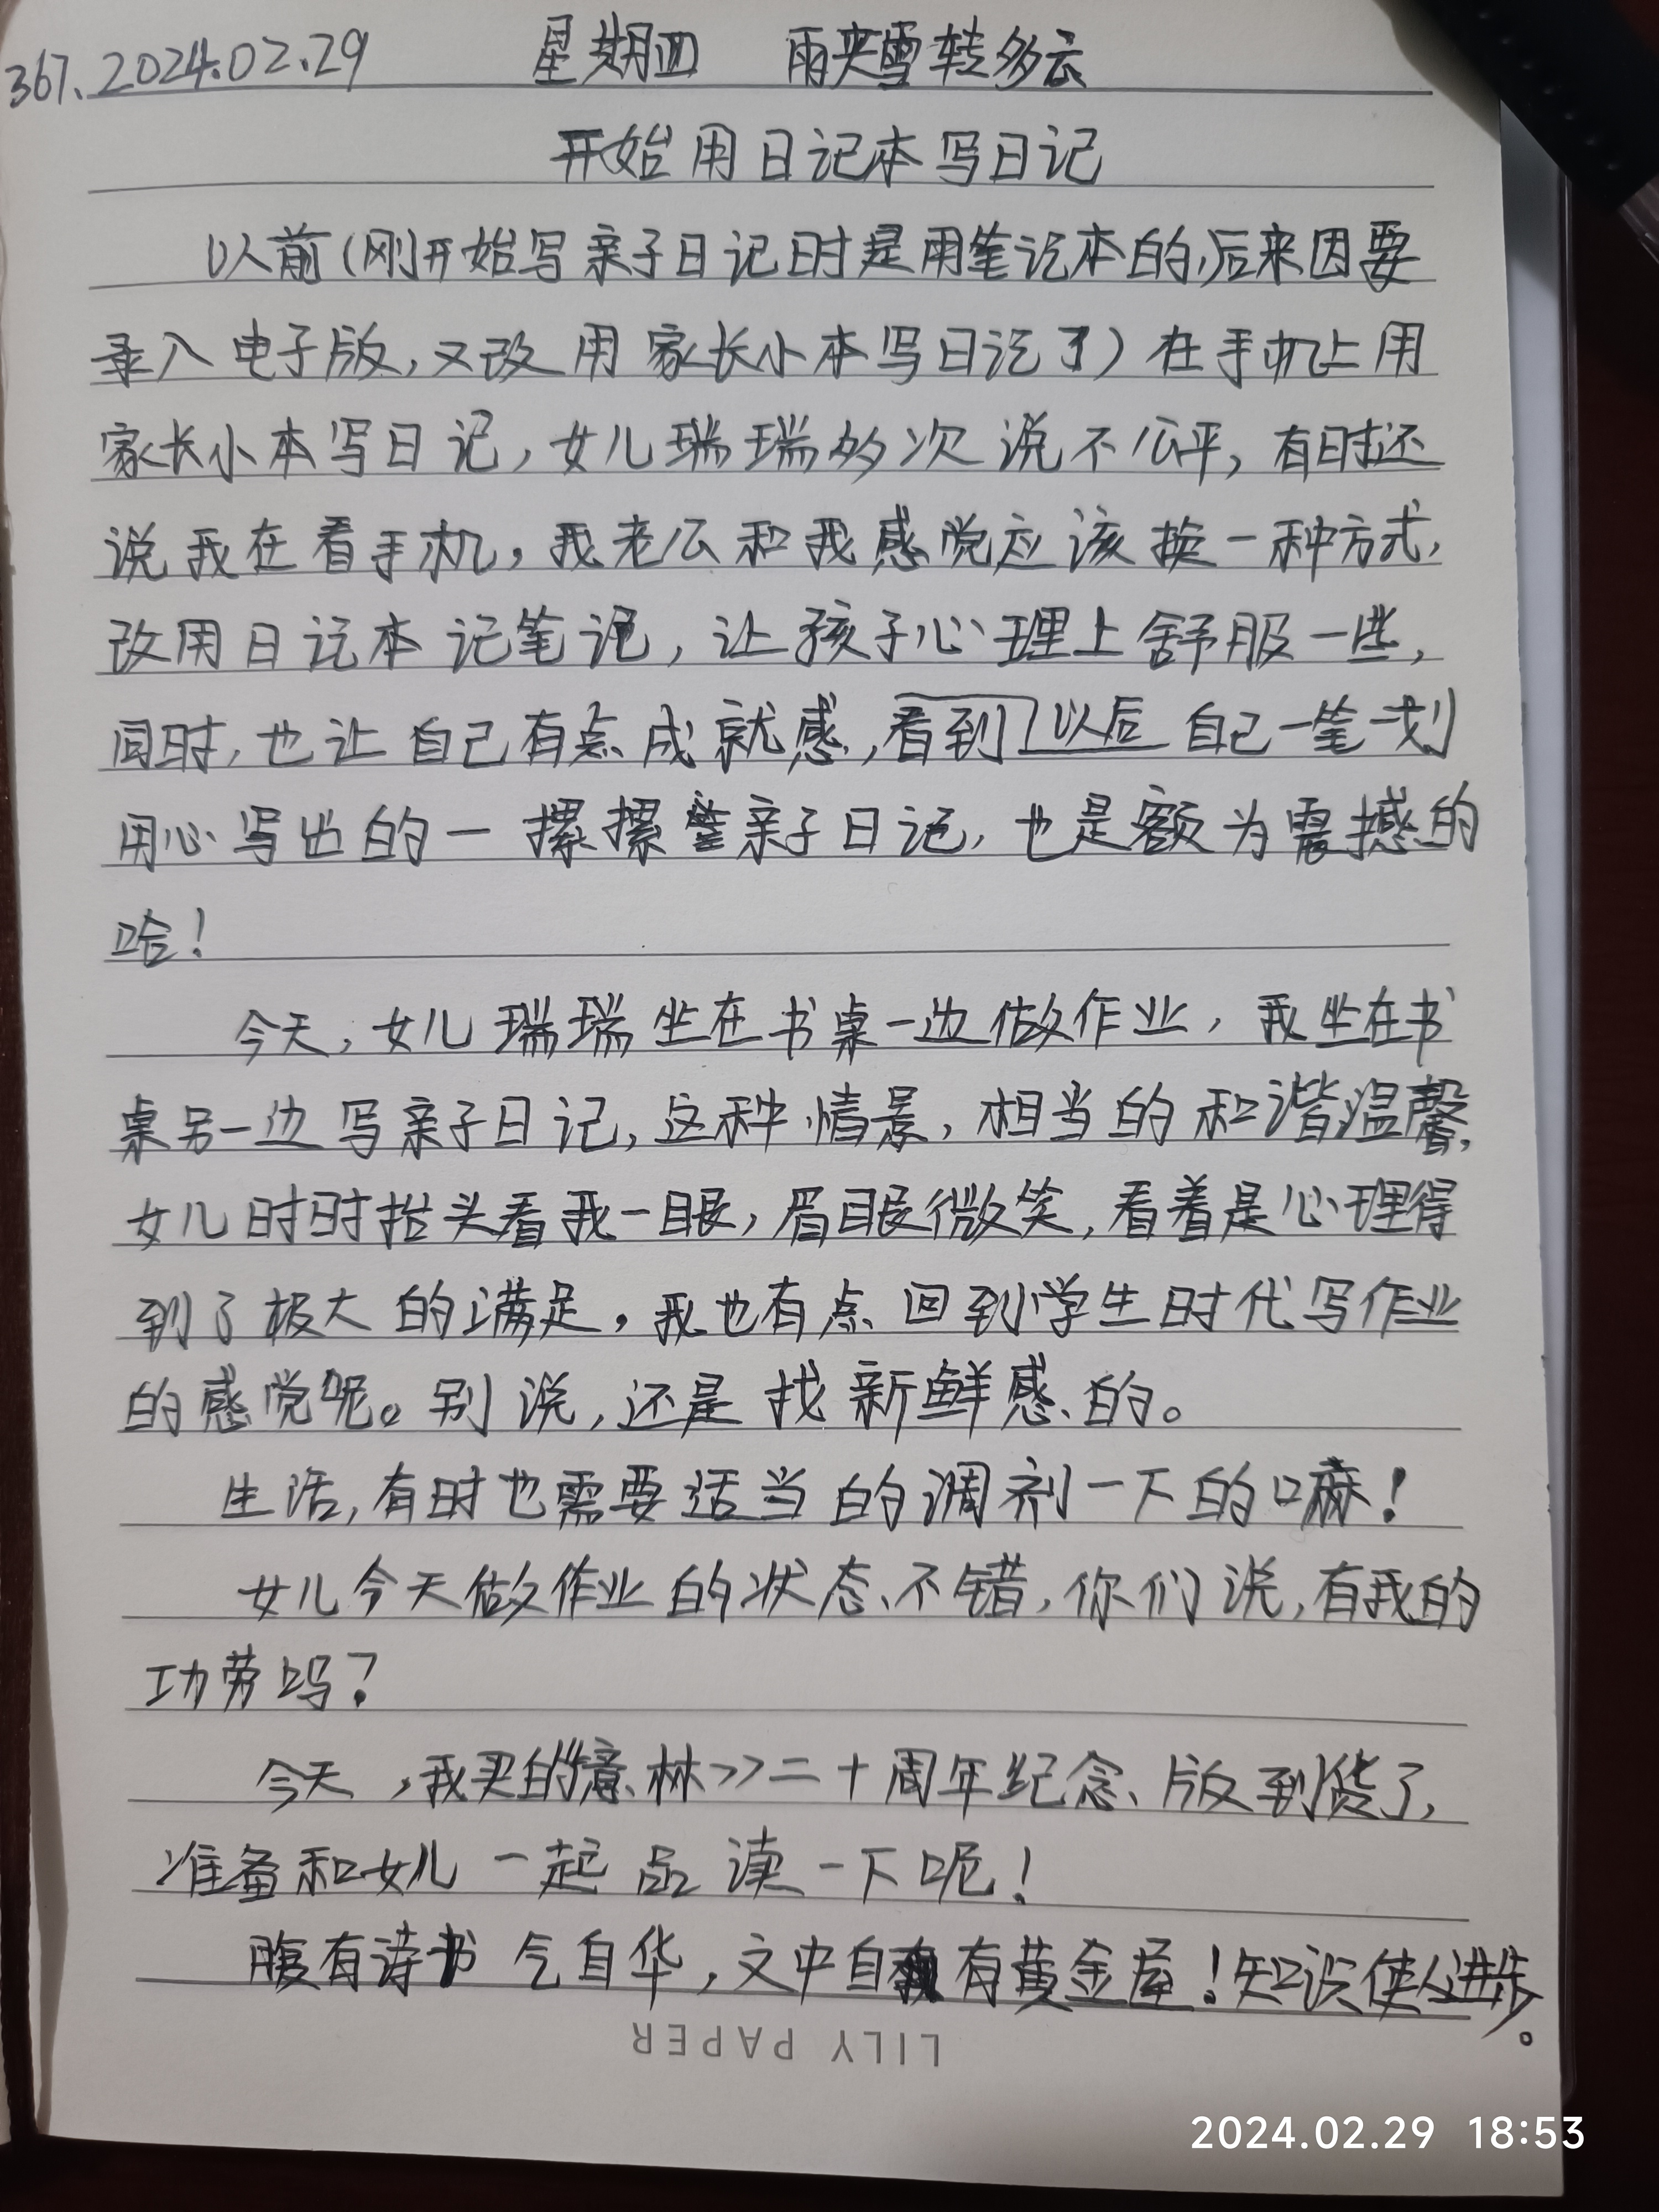 367. 2024.02.29 星期四 雨夹雪转多云
开始用日记本写日记
以前(刚开始写亲子日记时是用笔记本的,后来因要
录入电子版,又改用家长小本写日记了)在手机上用
家长小本写日记,女儿瑞瑞多次说不公平,有时还
说我在看手机,我老公和我感觉应该换一种方式,
改用日记本记笔记,让孩子心理上舒服一些,
同时,也让自己有点成就感,看到以后自己一笔一划
用心写出的一摞摞亲子日记,也是颇为震撼的
哈!
今天,女儿瑞瑞坐在书桌一边做作业,我坐在书
桌另一边写亲子日记,这种情景,相当的和谐温馨,
女儿时时抬头看我一眼,眉眼微笑,看着是心理得
到了极大的满足,我也有点回到学生时代写作业
的感觉呢。别说,还是找新鲜感的。
生活,有时也需要适当的调剂一下的嘛!
女儿今天做作业的状态不错,你们说,有我的
功劳吗?
今天,我买的《意林》二十周年纪念版到货了,
准备和女儿一起品读一下呢!
腹有诗书气自华,文中自有黄金屋!知识使人进步。
LILY PAPER
2024.02.29 18:53